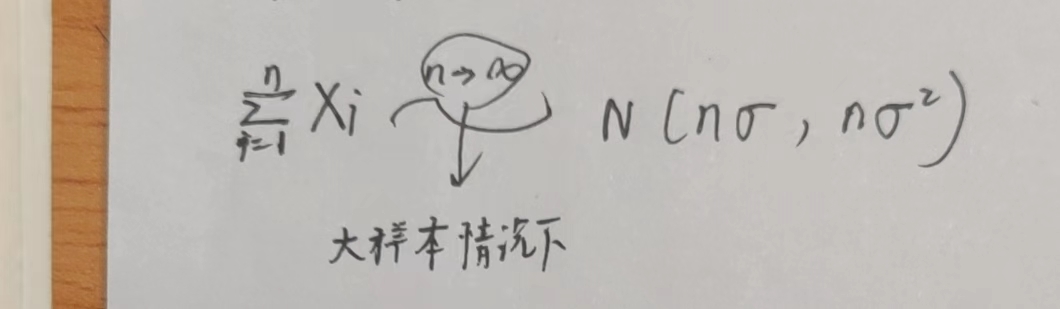 \sum_{i=1}^{n} Xi \overset{n→∞}{\sim} N(nσ, nσ²)
大样本情况下